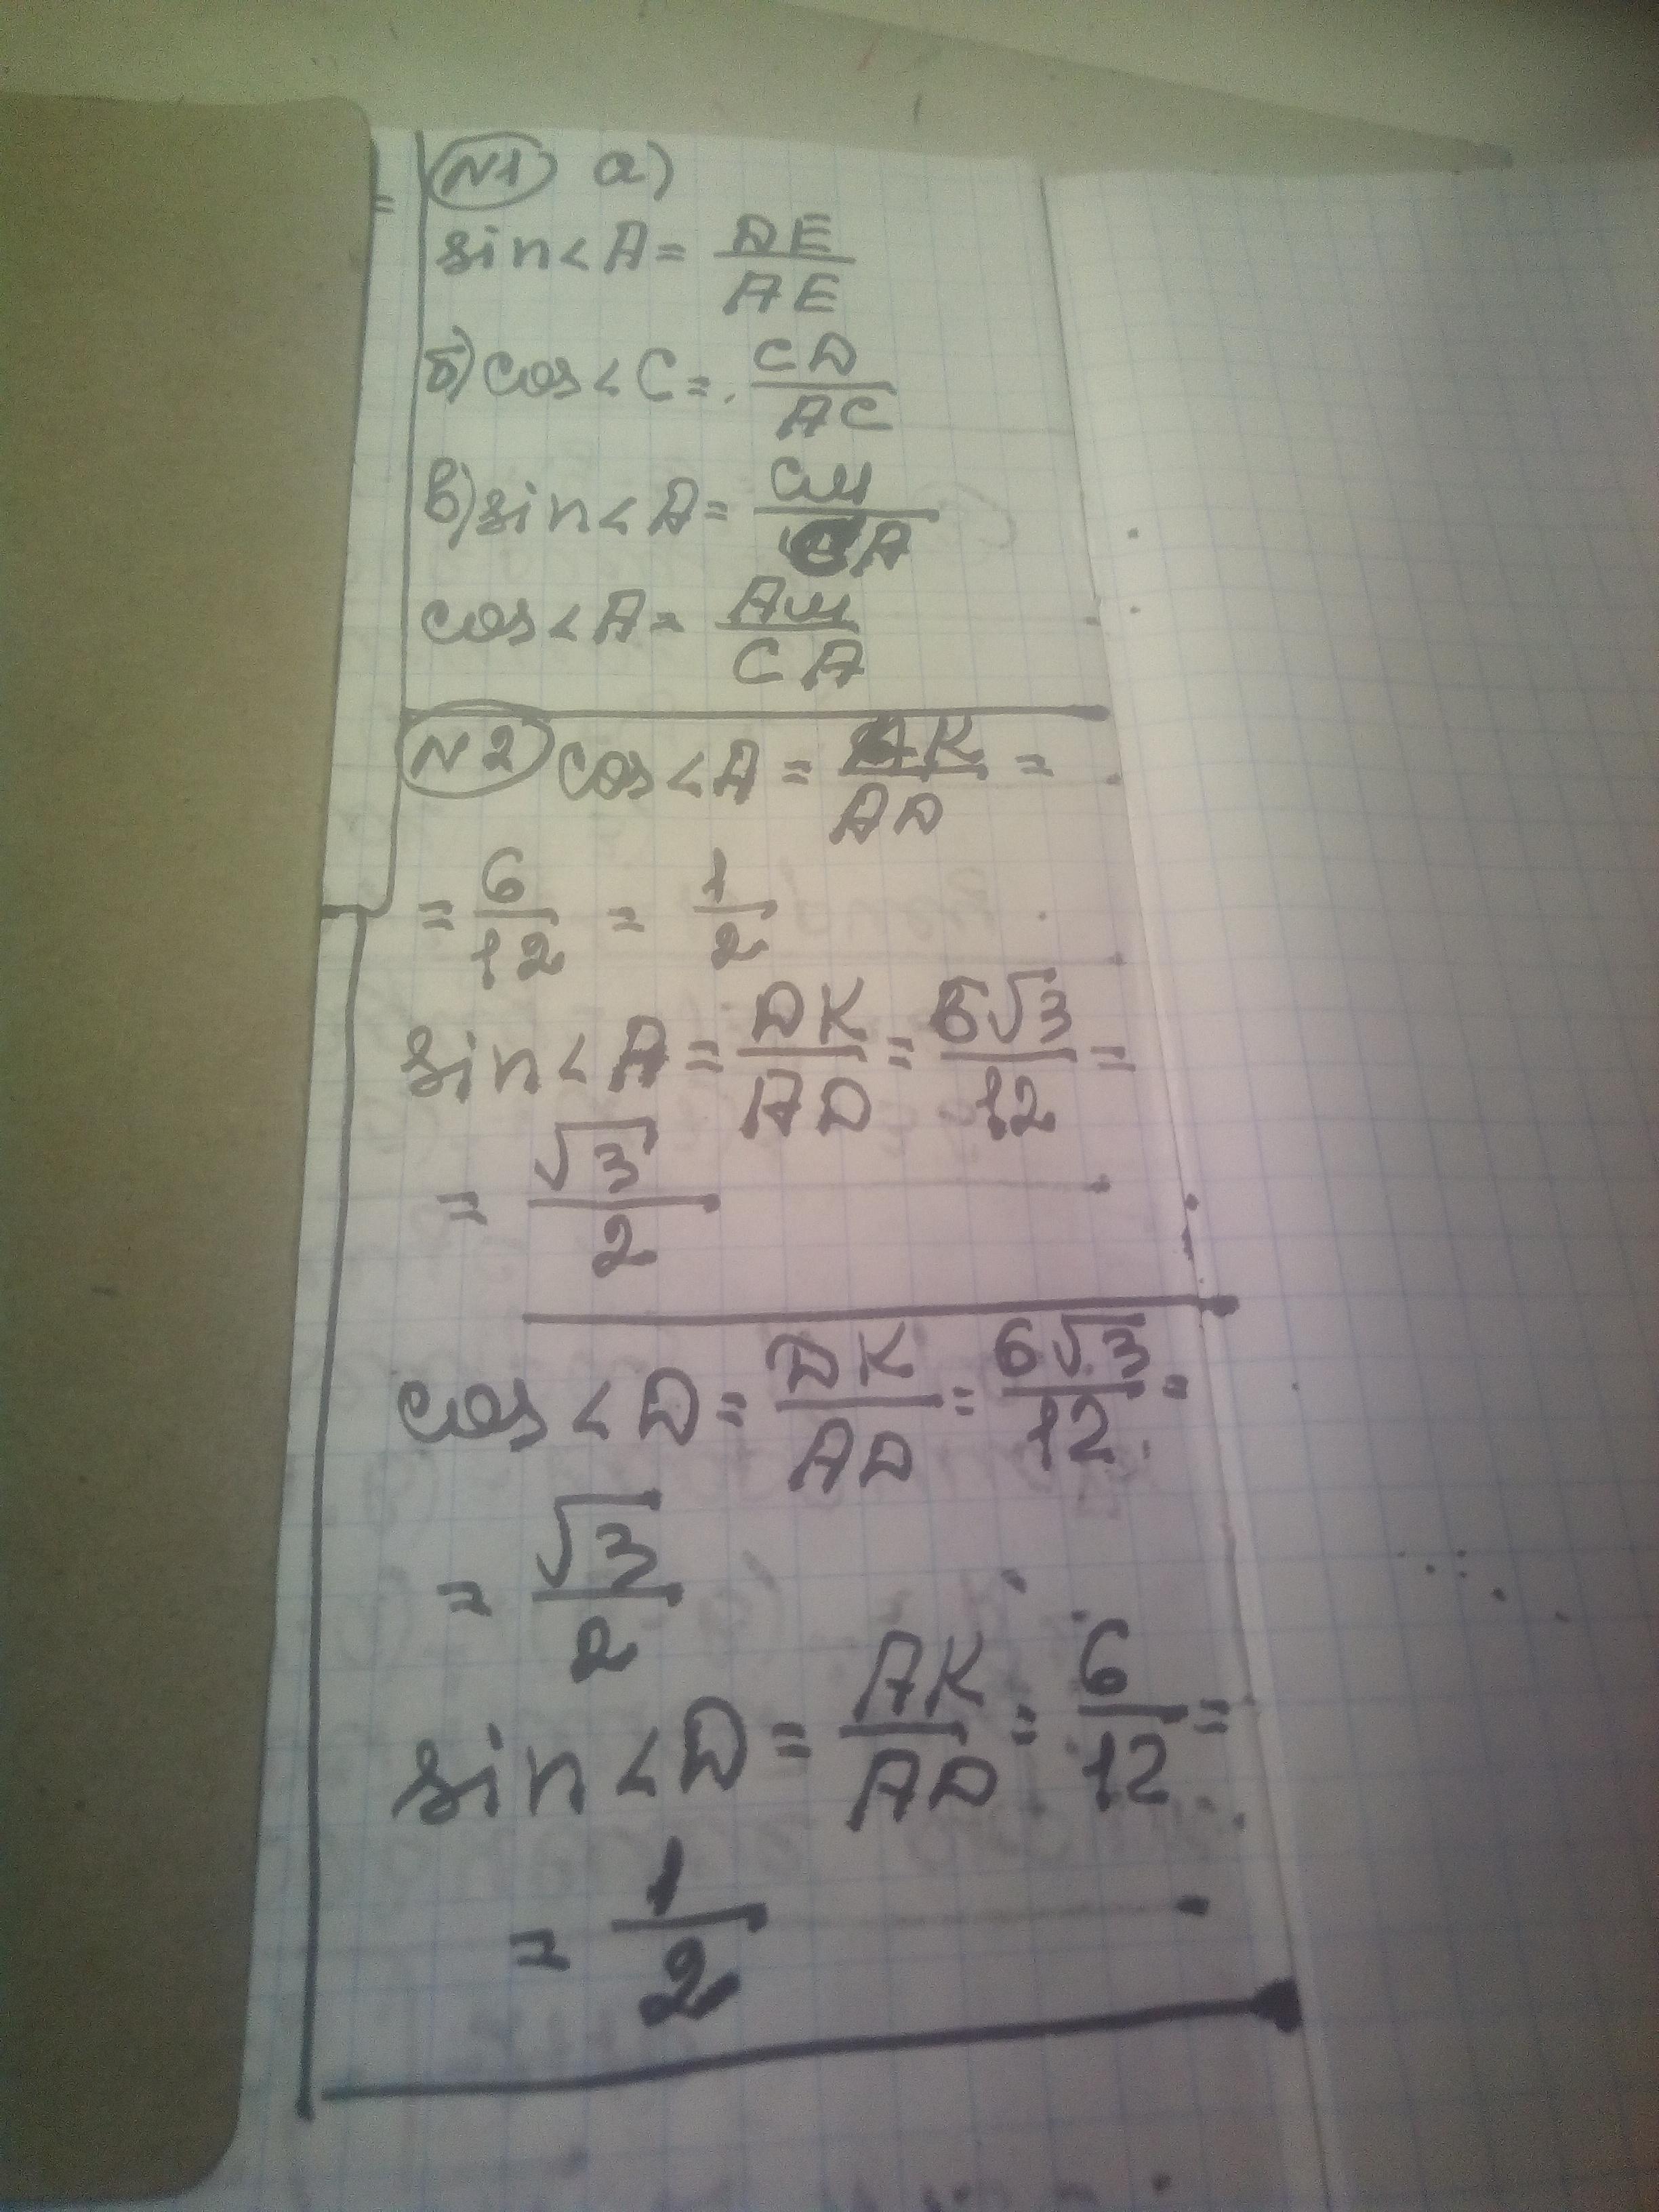 N1 а)
sin∠A = DE/AE
б) cos∠C = CD/AC
в) sin∠A = CM/CA
cos∠A = AM/CA
N2 cos∠A = AK/AD =
= 6/12 = 1/2
sin∠A = DK/AD = 6√3/12 =
= √3/2
cos∠D = DK/AD = 6√3/12 =
= √3/2
sin∠D = AK/AD = 6/12 =
= 1/2